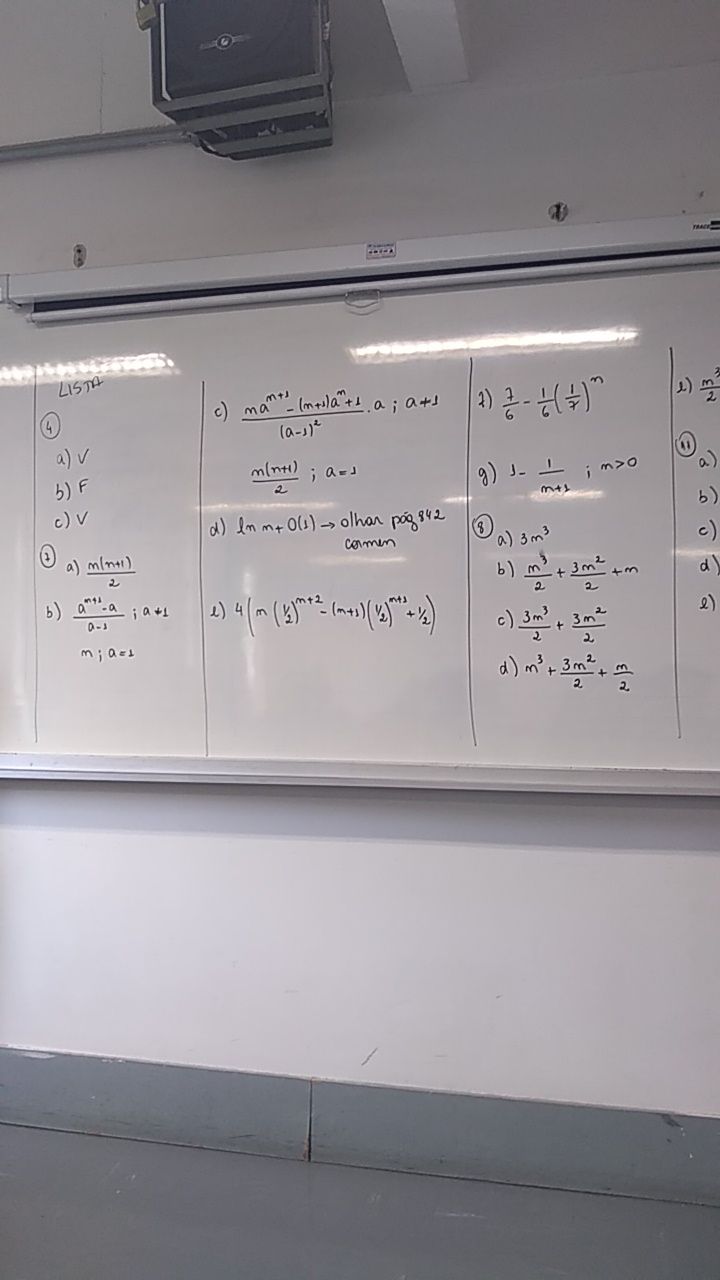 LISTA
4
a) V
b) F
c) V
7
a) n(n+1)/2
b) (a^(n+1) - a)/(a-1) ; a≠1
n ; a=1
c) (na^(n+1) - (n+1)a^n + 1)/(a-1)^2 . a ; a≠1
n(n+1)/2 ; a=1
d) ln n + O(1) → olhar pág 842
cormen
e) 4(n(1/2)^(n+2) - (n+1)(1/2)^(n+1) + 1/2)
f) 7/6 - 1/6(1/7)^n
g) 1 - 1/(n+1) ; n>0
8
a) 3n^3
b) n^3/2 + 3n^2/2 + n
c) 3n^3/2 + 3n^2/2
d) n^3 + 3n^2/2 + n/2
e) n^3/2
11
a)
b)
c)
d)
e)